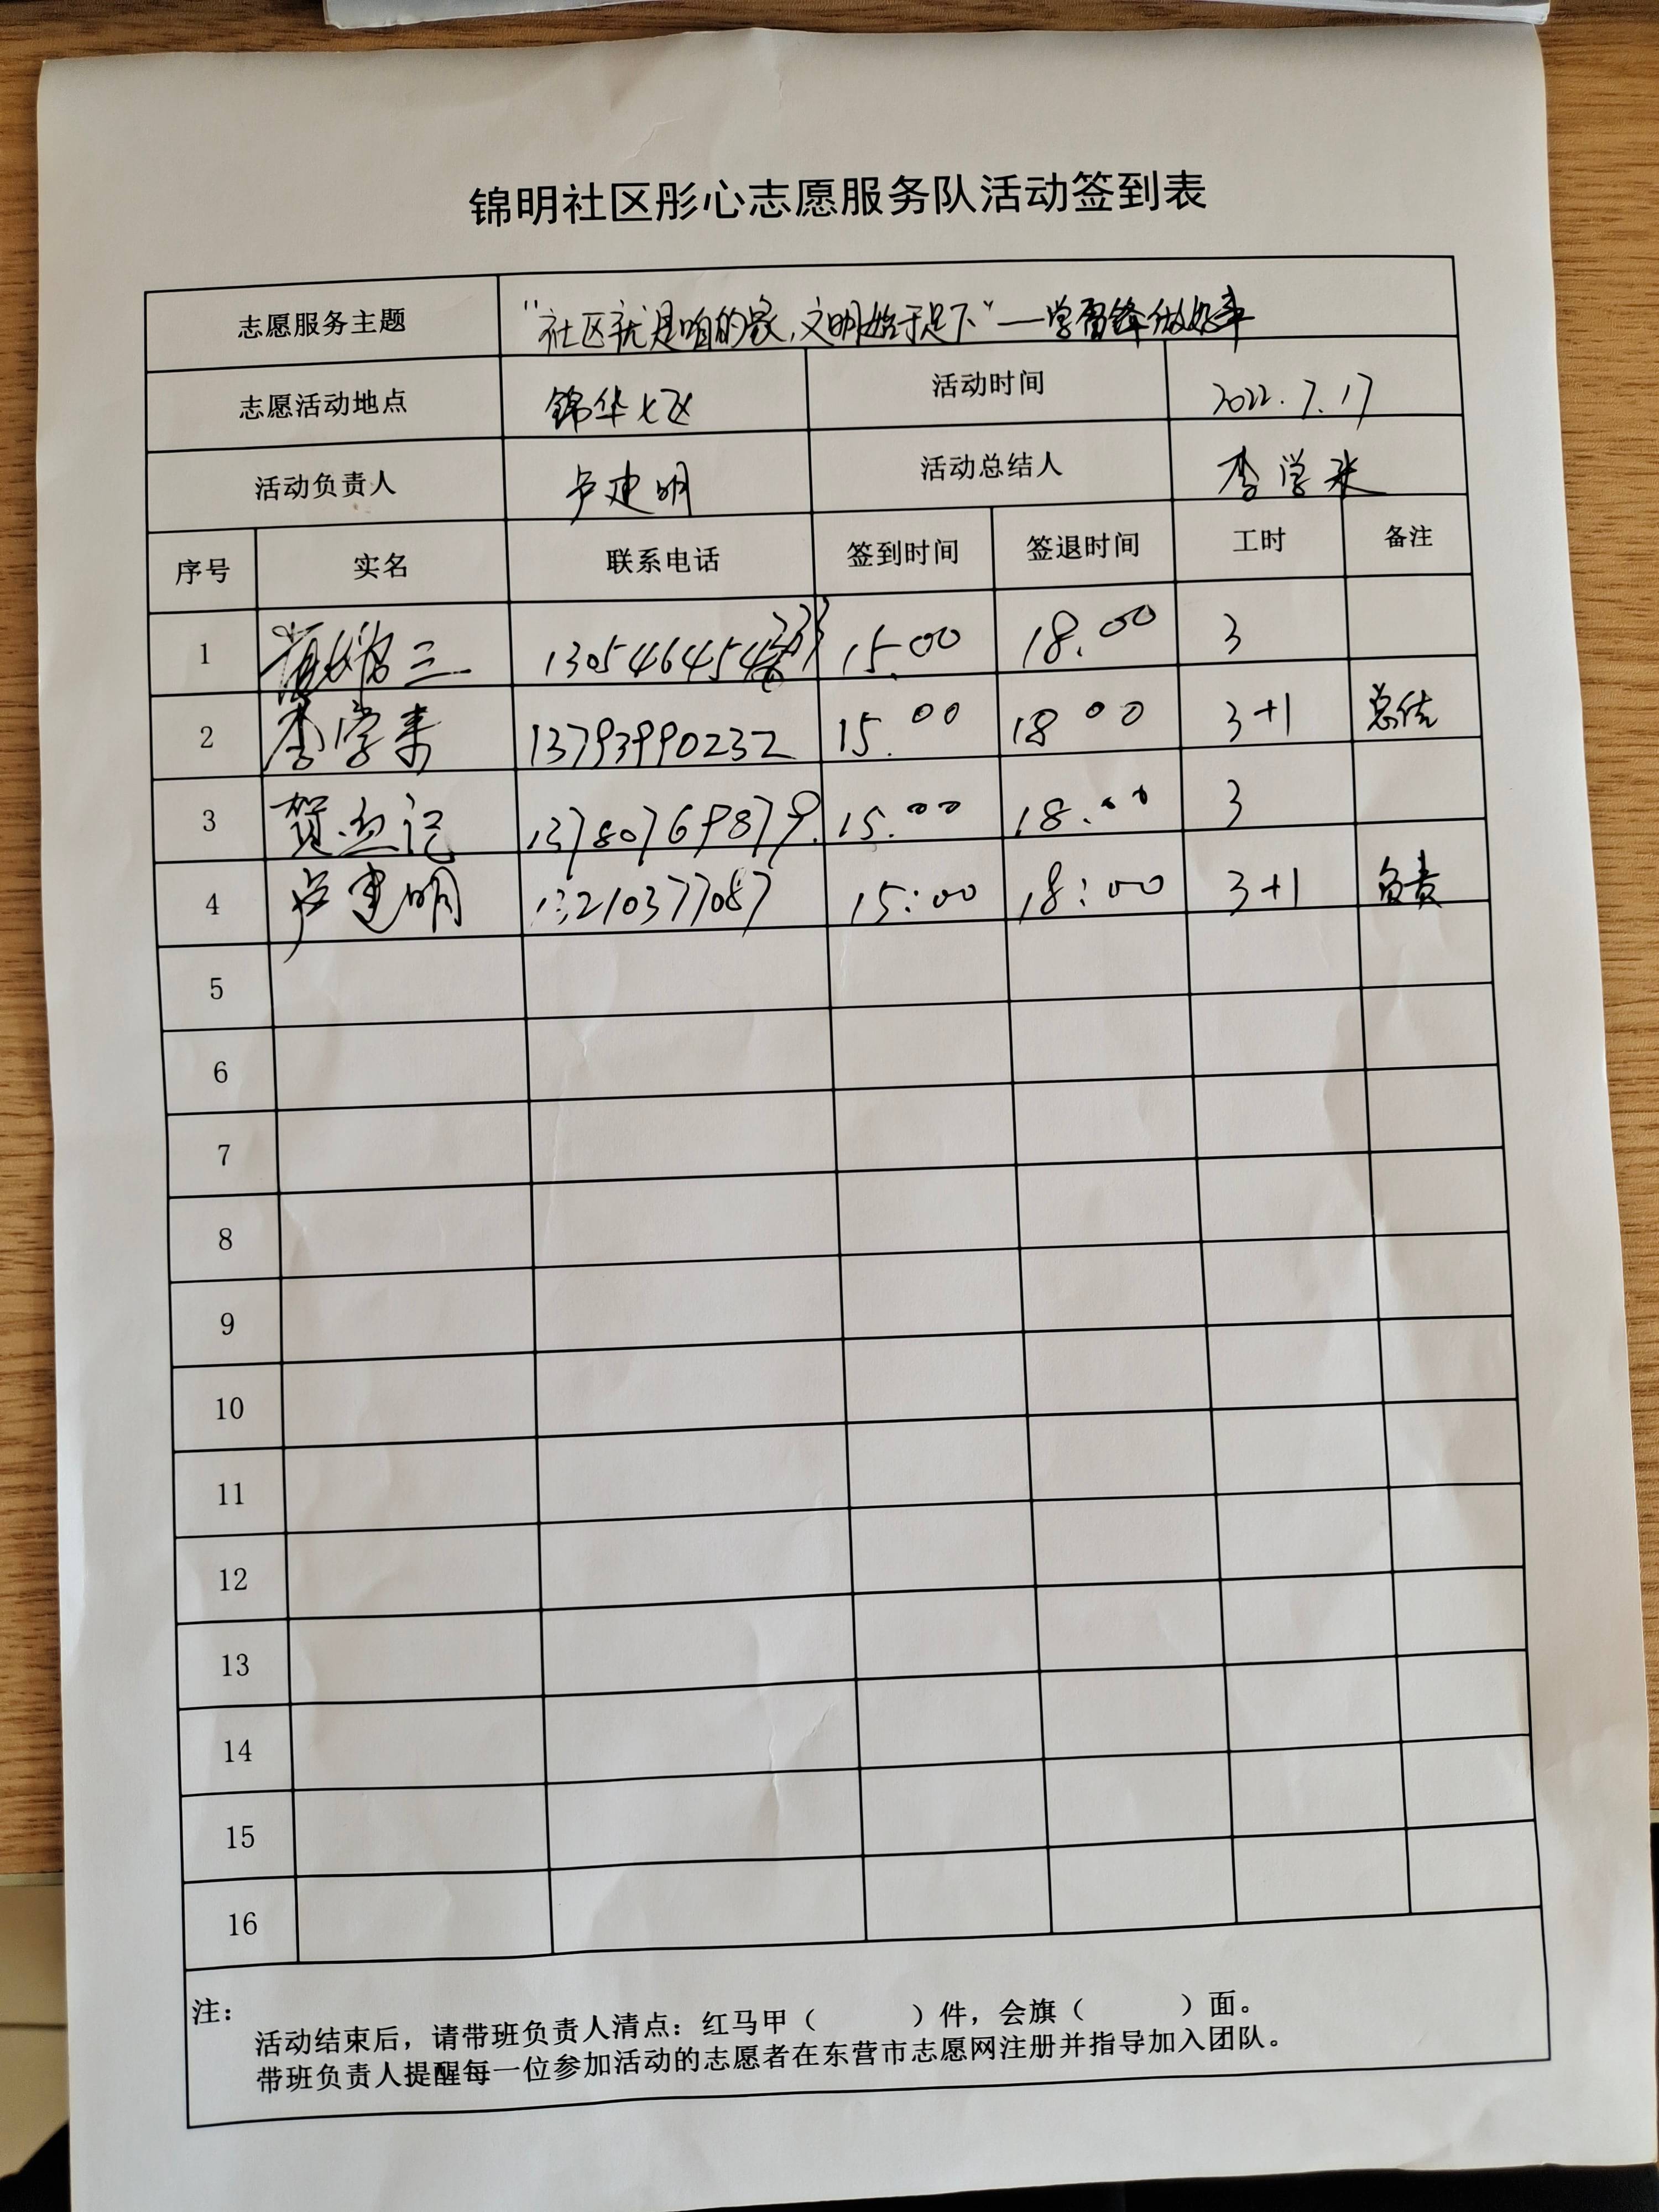 锦明社区彤心志愿服务队活动签到表
志愿服务主题 "社区就是咱的家,文明始于足下"—学雷锋做好事
志愿活动地点 锦华七区 活动时间 2022.7.17
活动负责人 卢建明 活动总结人 李学来
序号 实名 联系电话 签到时间 签退时间 工时 备注
1 三 15.00 18.00 3
2 李学来 13793990232 15.00 18 00 3+1 总结
3 贺 记 15.00 18.00 3
4 卢建明 13210377087 15:00 18:00 3+1 负责
5
6
7
8
9
10
11
12
13
14
15
16
注:
活动结束后,请带班负责人清点:红马甲( )件,会旗( )面。
带班负责人提醒每一位参加活动的志愿者在东营市志愿网注册并指导加入团队。